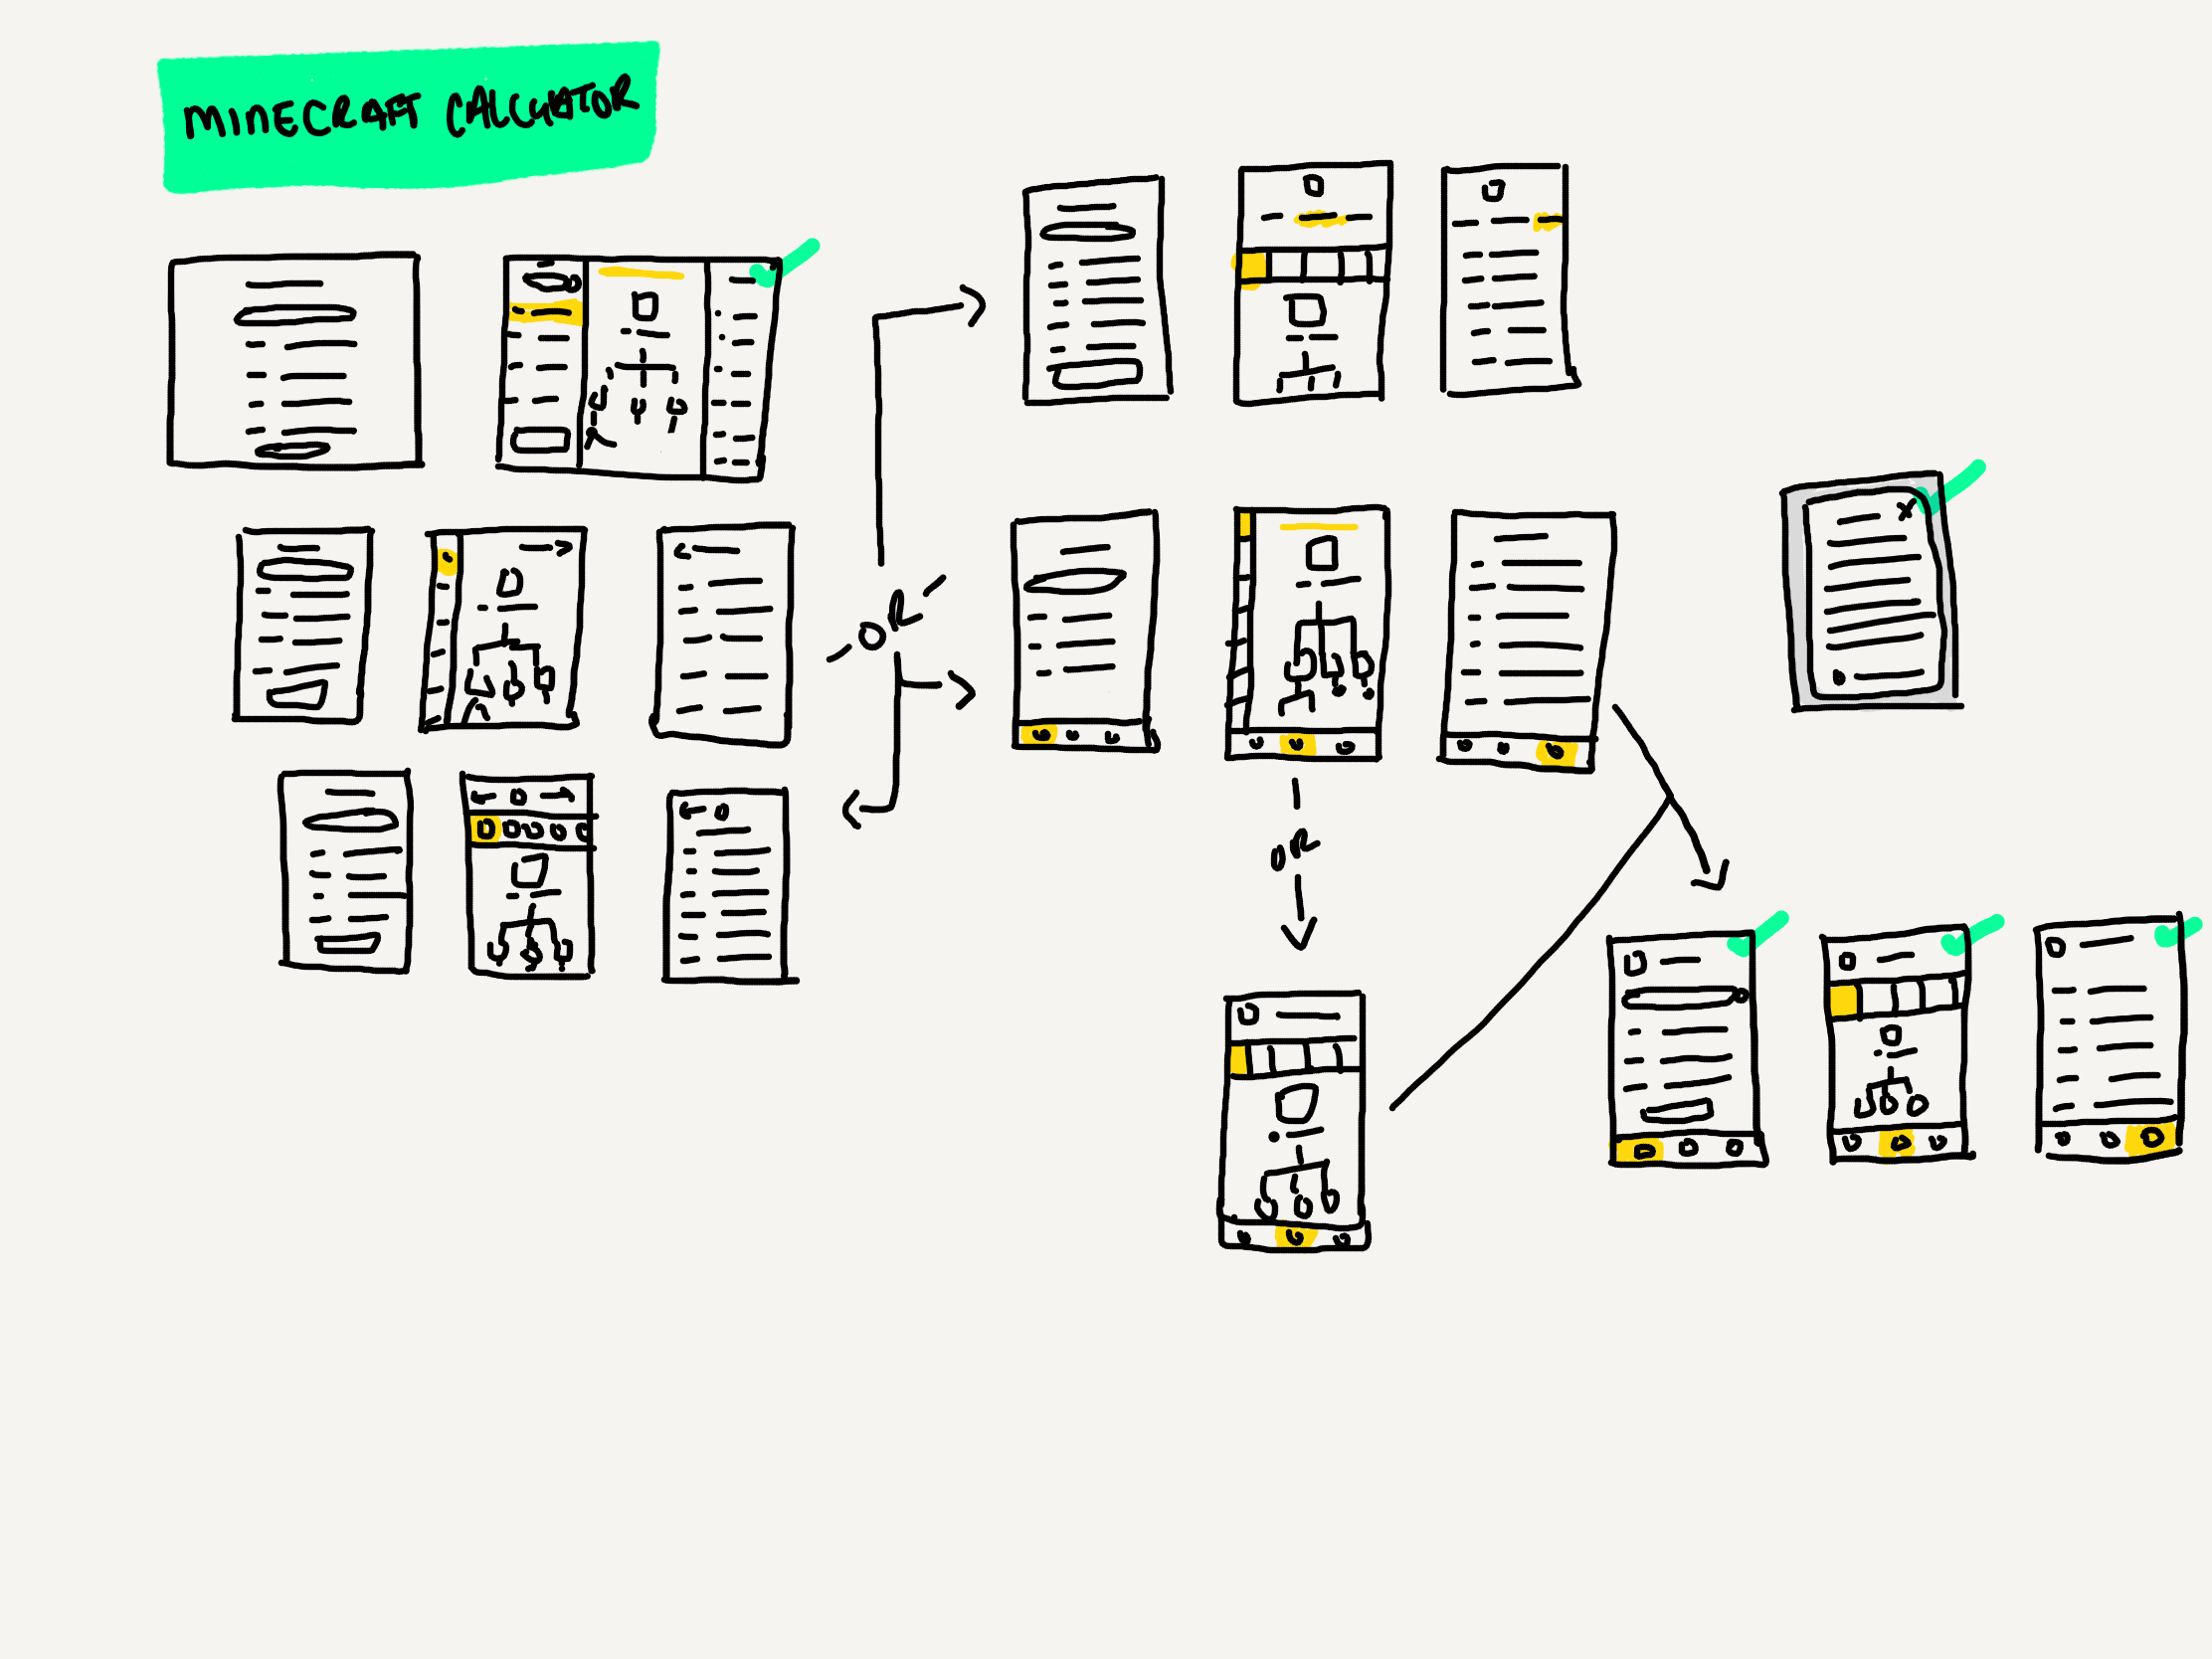 MINECRAFT CALCULATOR
OR
OR
X